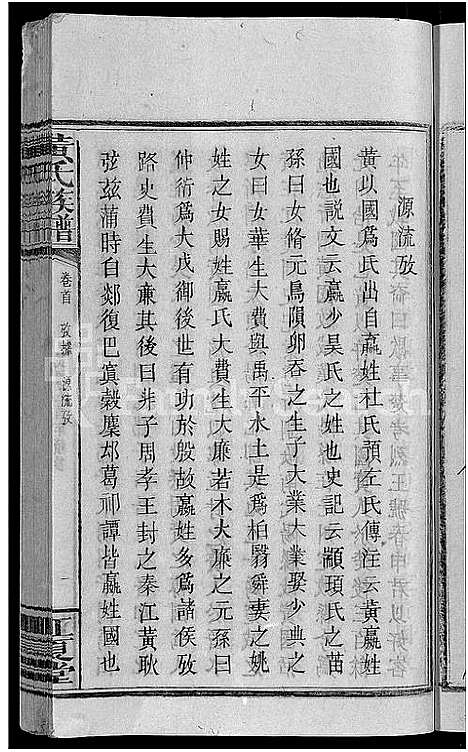 源流攷
黃以國爲氏出自嬴姓杜氏預左氏傳注云黃嬴姓
國也説文云嬴少昊氏之姓也史記云顓頊氏之苗
孫曰女脩元鳥隕卵吞之生子大業大業娶少典之
女曰女華生大費與禹平水土是爲柏翳舜妻之姚
姓之女賜姓嬴氏大費生大廉若木大廉之元孫曰
仲衍爲大戊御後世有功於殷故嬴姓多爲諸侯攷
路史費生大亷其後曰非子周孝王封之秦江黃耿
弦兹蒲時白郯復巴賔穀麇邥葛祁譚皆嬴姓國也
黃氏族譜
卷首
攷據
源流攷
一
江夏堂